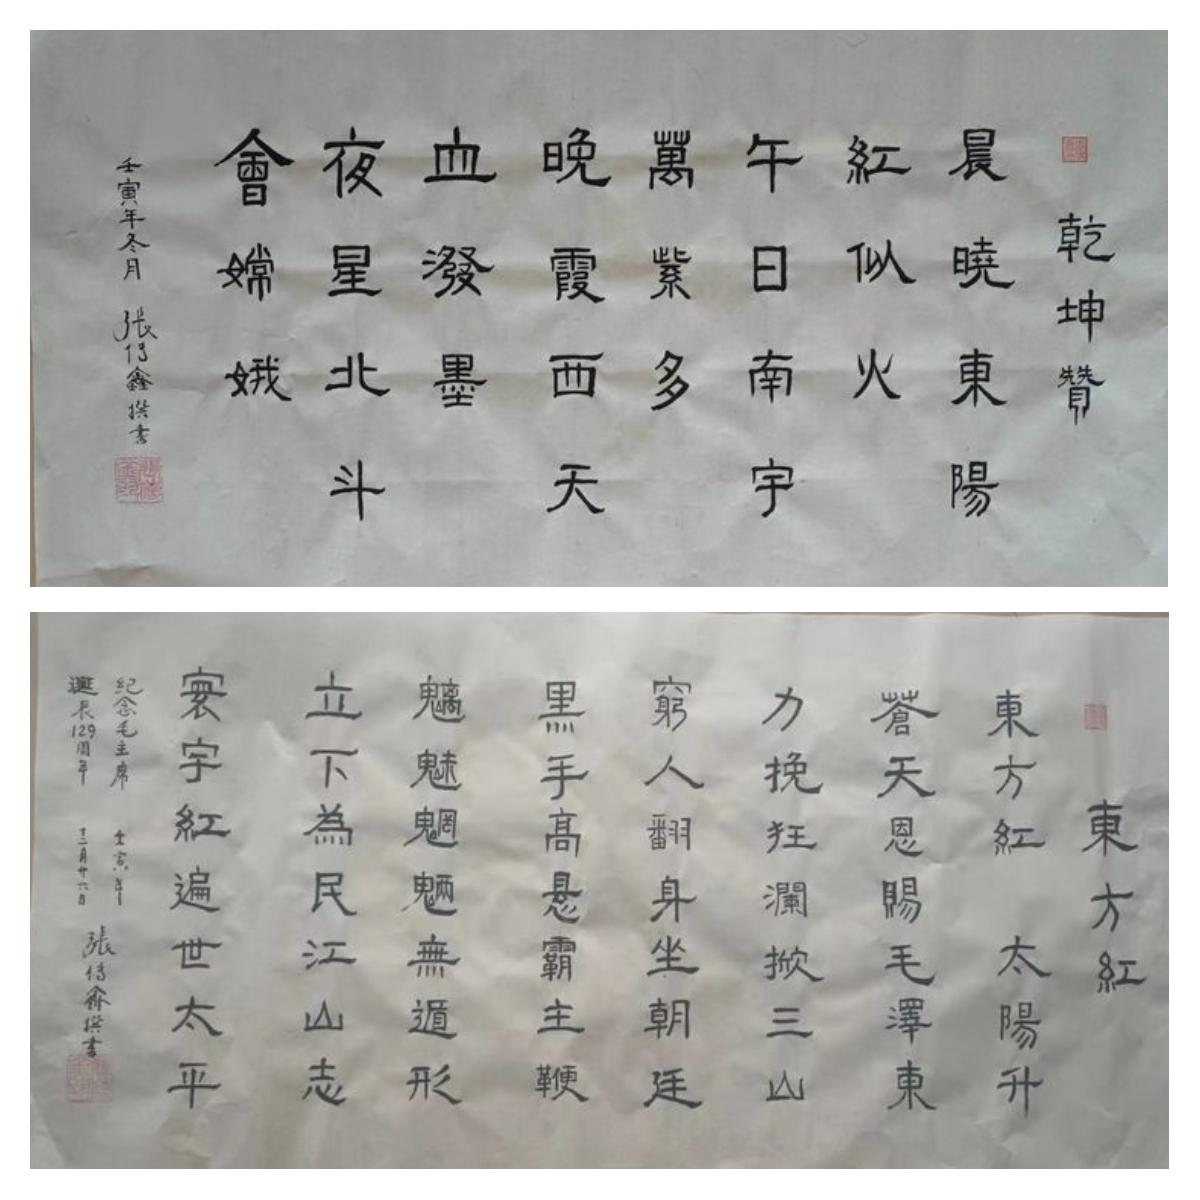 乾坤贊
晨曉東陽
紅似火
午日南宇
萬紫多
晚霞西天
血潑墨
夜星北斗
會嫦娥
壬寅年冬月 張傳鑫撰書
東方紅
東方紅 太陽升
蒼天恩賜毛澤東
力挽狂瀾掀三山
窮人翻身坐朝廷
黑手高悬霸主鞭
魑魅魍魎無遁形
立下為民江山志
寰宇紅遍世太平
紀念毛主席 壬寅年
誕辰129周年 十二月廿六日
張傳鑫撰書